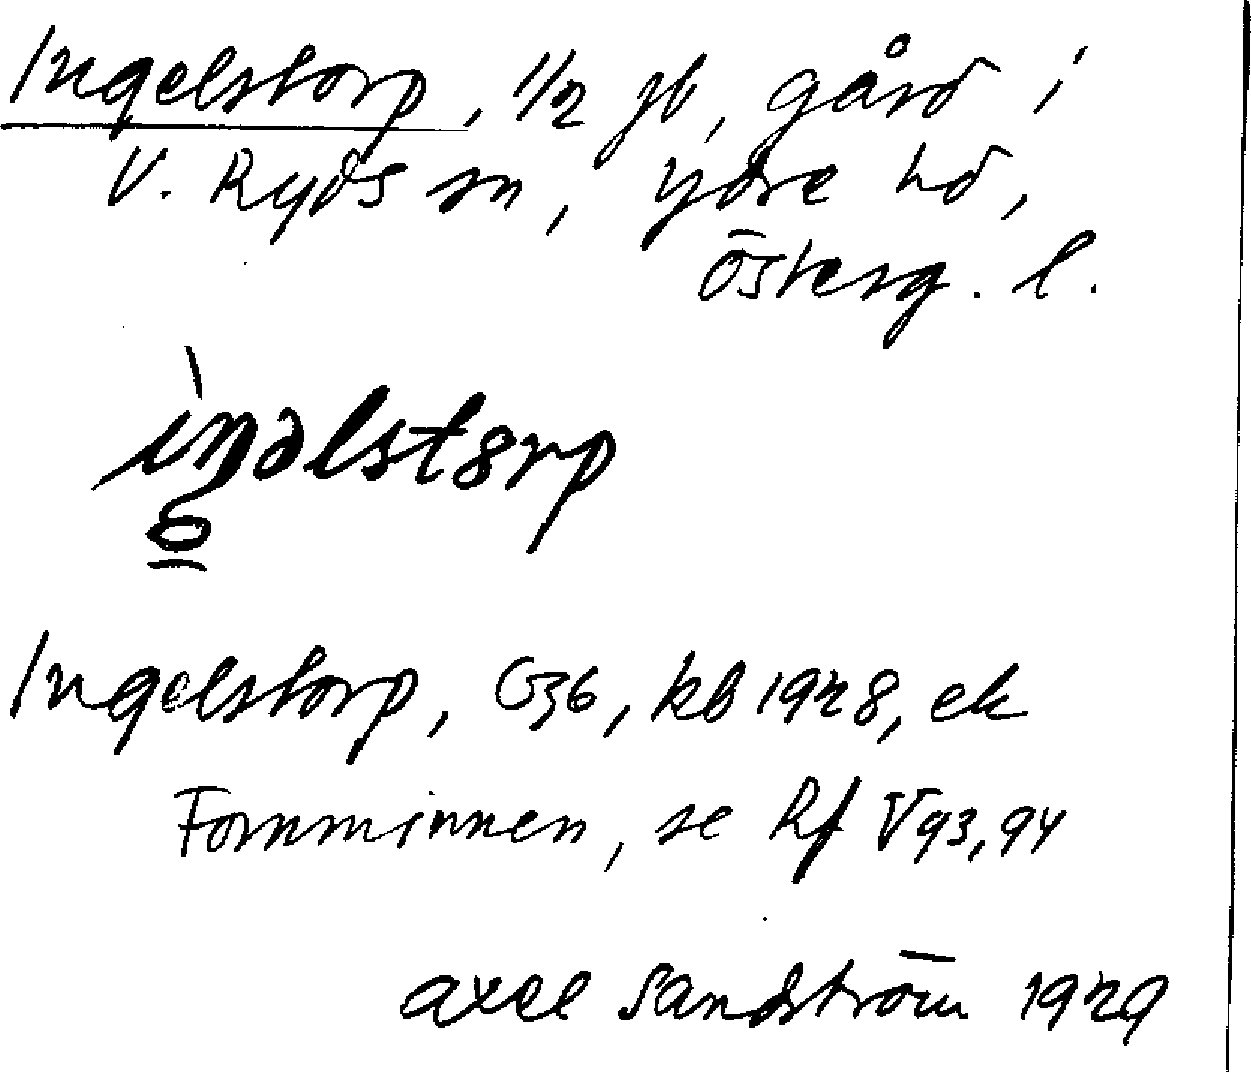 Ingelstorp, 1/2 jb, gård i
V. Ryds sn, Ydre hd,
Österg. l.
ìŋəlstɵrp
Ingelstorp, G36, kb 1928, ek
Fornminnen, se Rf V 93, 94
Axel Sandström 1929